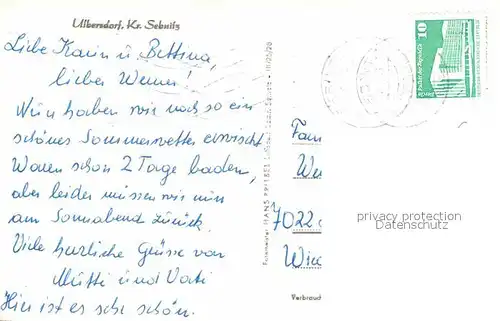 Ulbersdorf, Kr. Sebnitz
Liebe Karin u. Bettina,
lieber Werner!
Nun haben wir noch so ein
schönes Sommerwetter erwischt
Waren schon 2 Tage baden,
aber leider müssen wir nun
am Sonnabend zurück.
Viele herzliche Grüsse von
Mutti und Vati
Hier ist es sehr schön.
10
Fam
We
7022
Wie
privacy protection
Datenschutz
Verbrauch